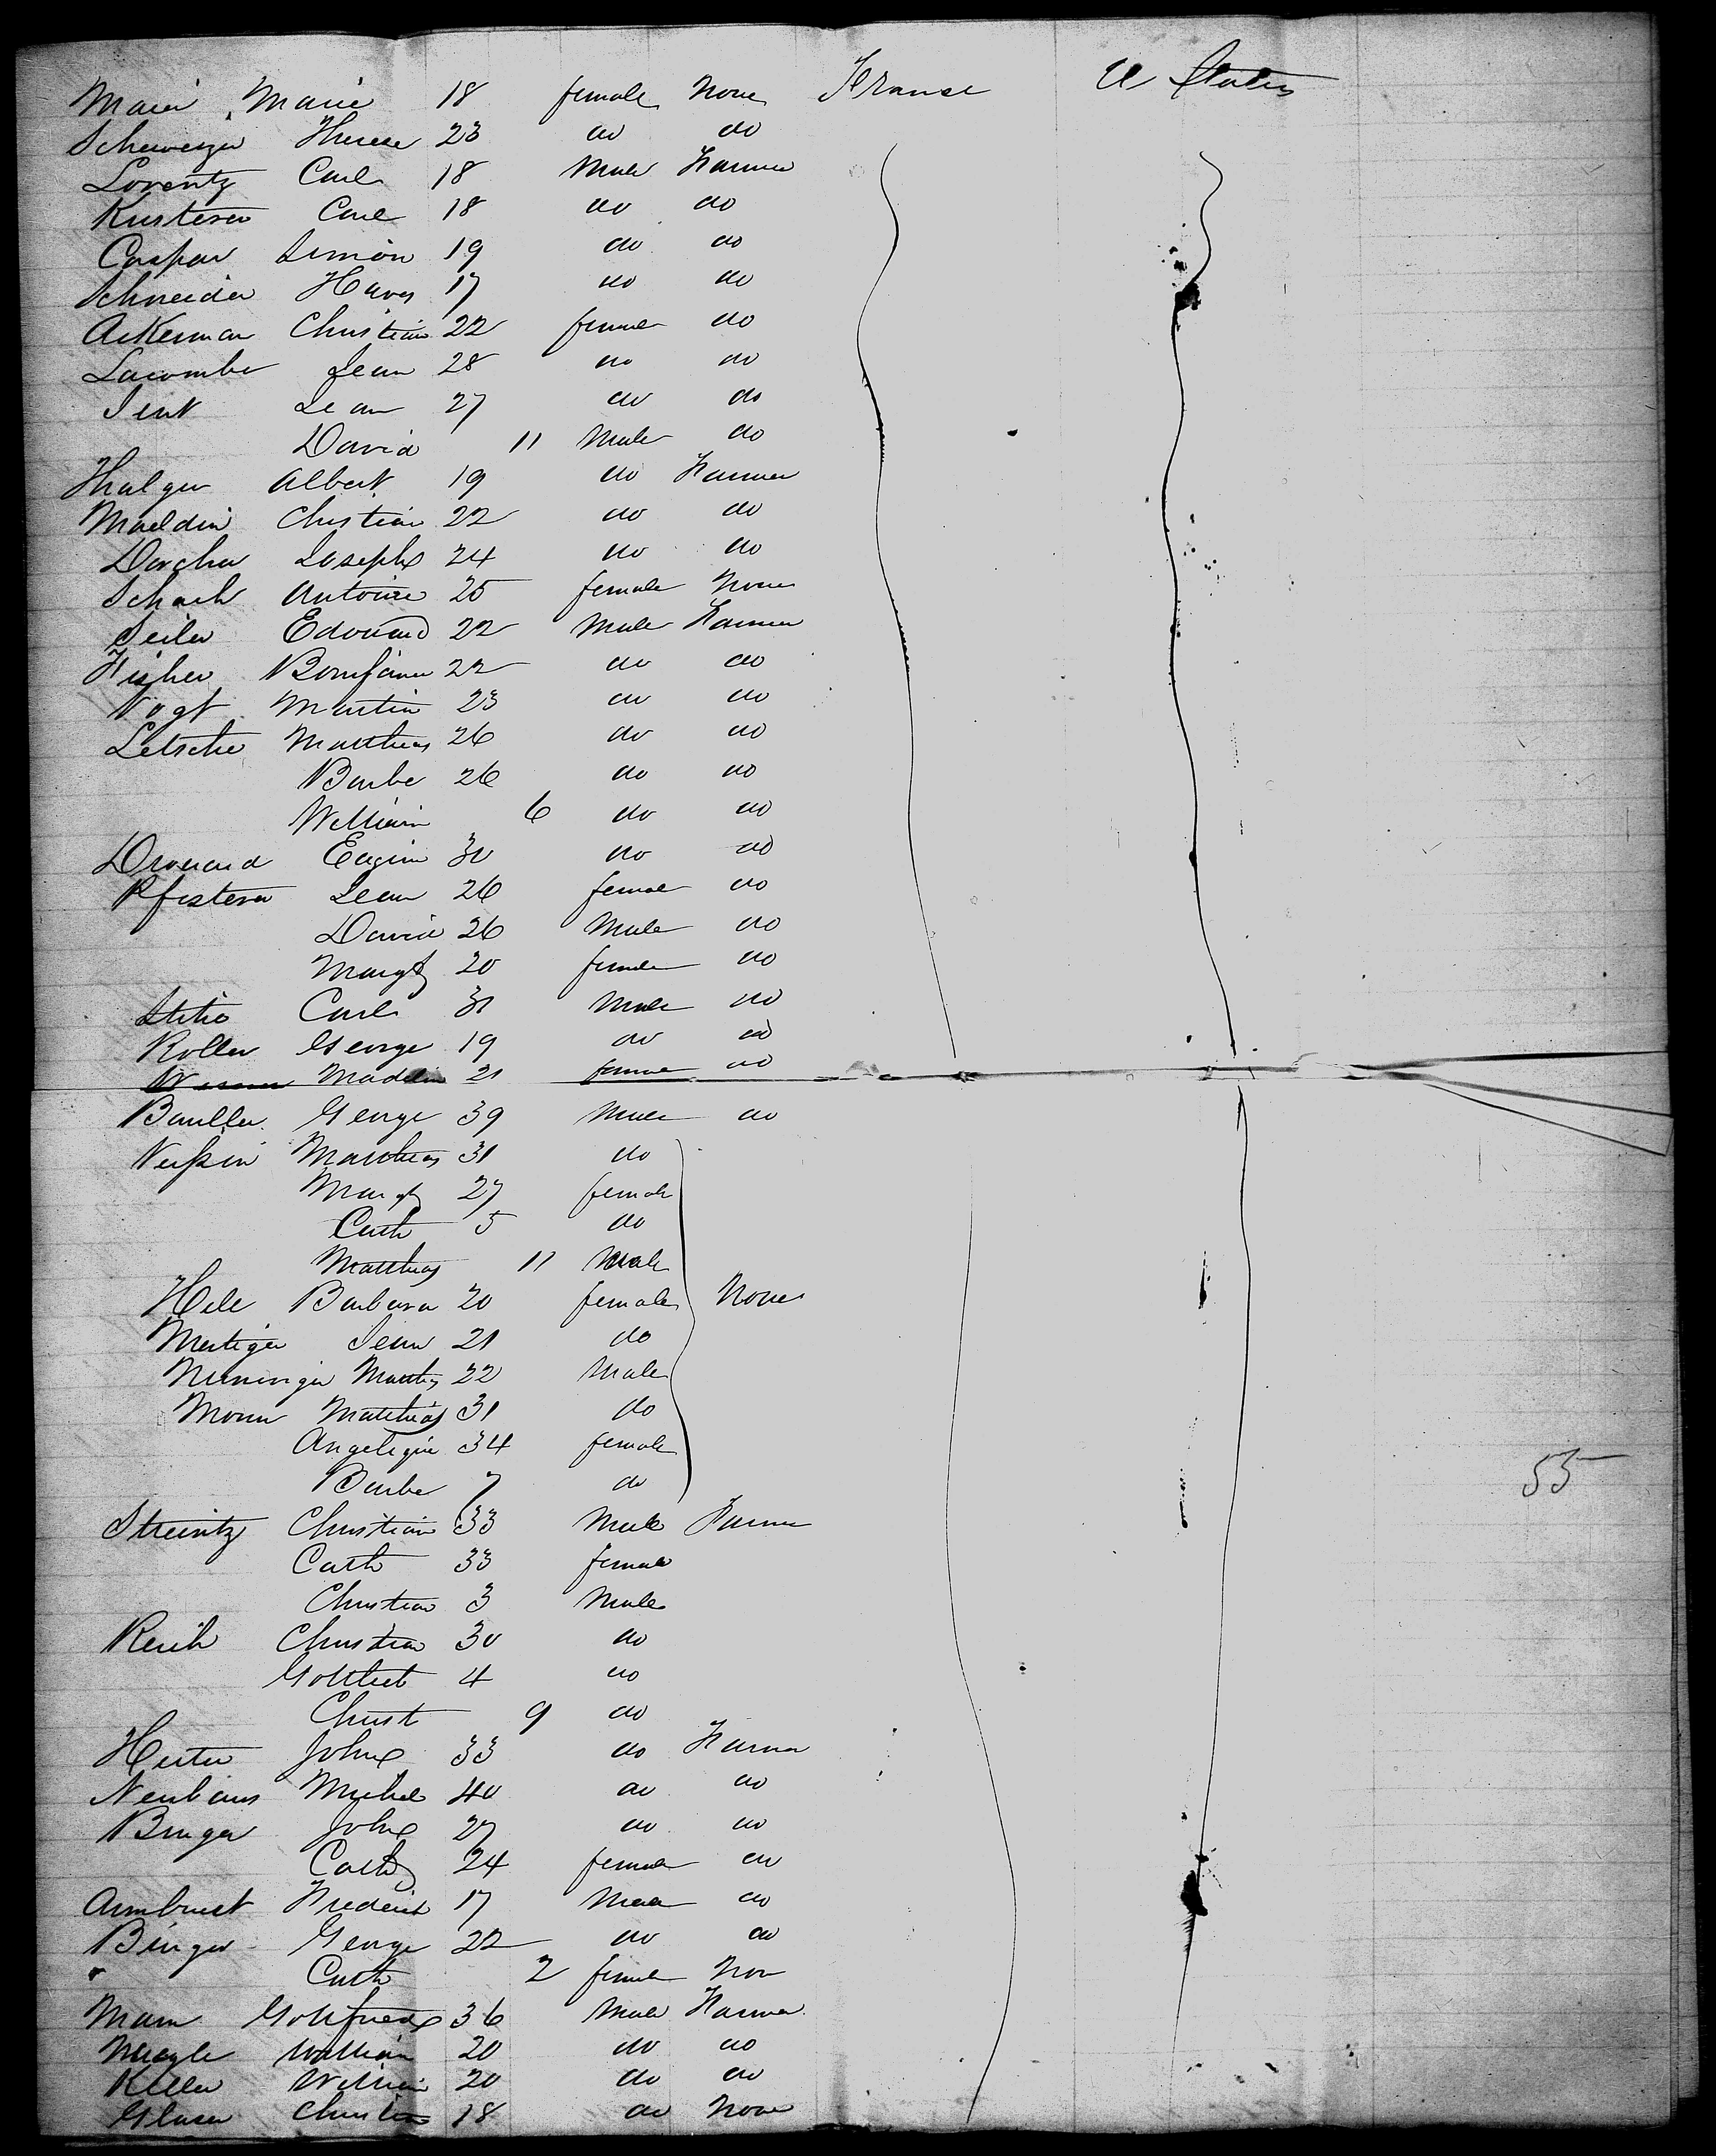 Maier Marie 18 female None France U States
Schweizer Therese 23 do do
Lorentz Carl 18 Male Farmer
Kusterer Carl 18 do do
Caspar Simon 19 do do
Schneider Hans 17 do do
Ackerman Christian 22 female do
Lacombe Jean 28 do do
Jean 27 do do
David 11 Male do
Albert 19 do Farmer
Christian 22 do do
Joseph 24 do do
Antoine 25 female None
Seiler Edouard 22 Male Farmer
22 do do
Vogt Martin 23 do do
Letsche Matthias 26 do do
Barbe 26 do do
William 6 do do
Drouard Eugine 30 do do
Pfisterer Jean 26 female do
David 26 Male do
Margt 20 female do
Carl 31 Male do
Koller George 19 do do
21 female do
George 39 Male do
Matthias 31 do
Margt 27 female
Cath 5 do
Matthias 11 Male
Hele Barbara 20 female None
Jean 21 do
22 Male
Matthias 31 do
Angelique 34 female
Barbe 7 do
55
Streintz Christian 33 Male Farmer
Cath 33 female
Christian 3 Male
Christian 30 do
Gottlieb 4 do
Christ 9 do
John 33 do Farmer
Michel 40 do do
John 27 do do
Cath 24 female do
Armbrust Frederick 17 Male do
Binger George 22 do do
Cath 2 female Non
Gottfried 36 Male Farmer
William 20 do do
Keller William 20 do do
Glaser Christian 18 do None